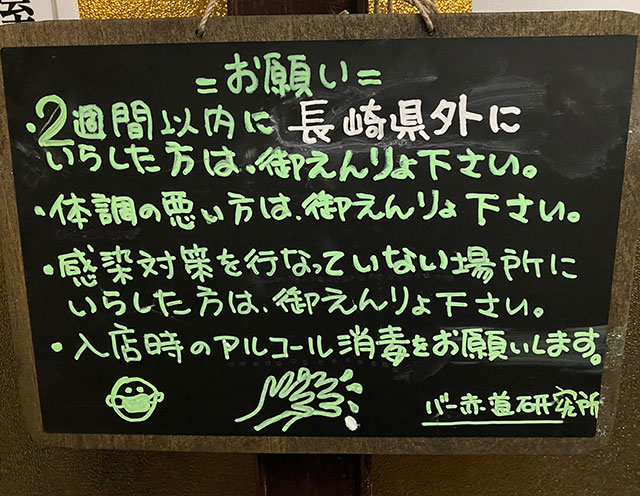 =お願い=
・2週間以内に長崎県外に
いらした方は、御えんりょ下さい。
・体調の悪い方は、御えんりょ下さい。
・感染対策を行なっていない場所に
いらした方は、御えんりょ下さい。
・入店時のアルコール消毒をお願いします。
バー赤道研究所